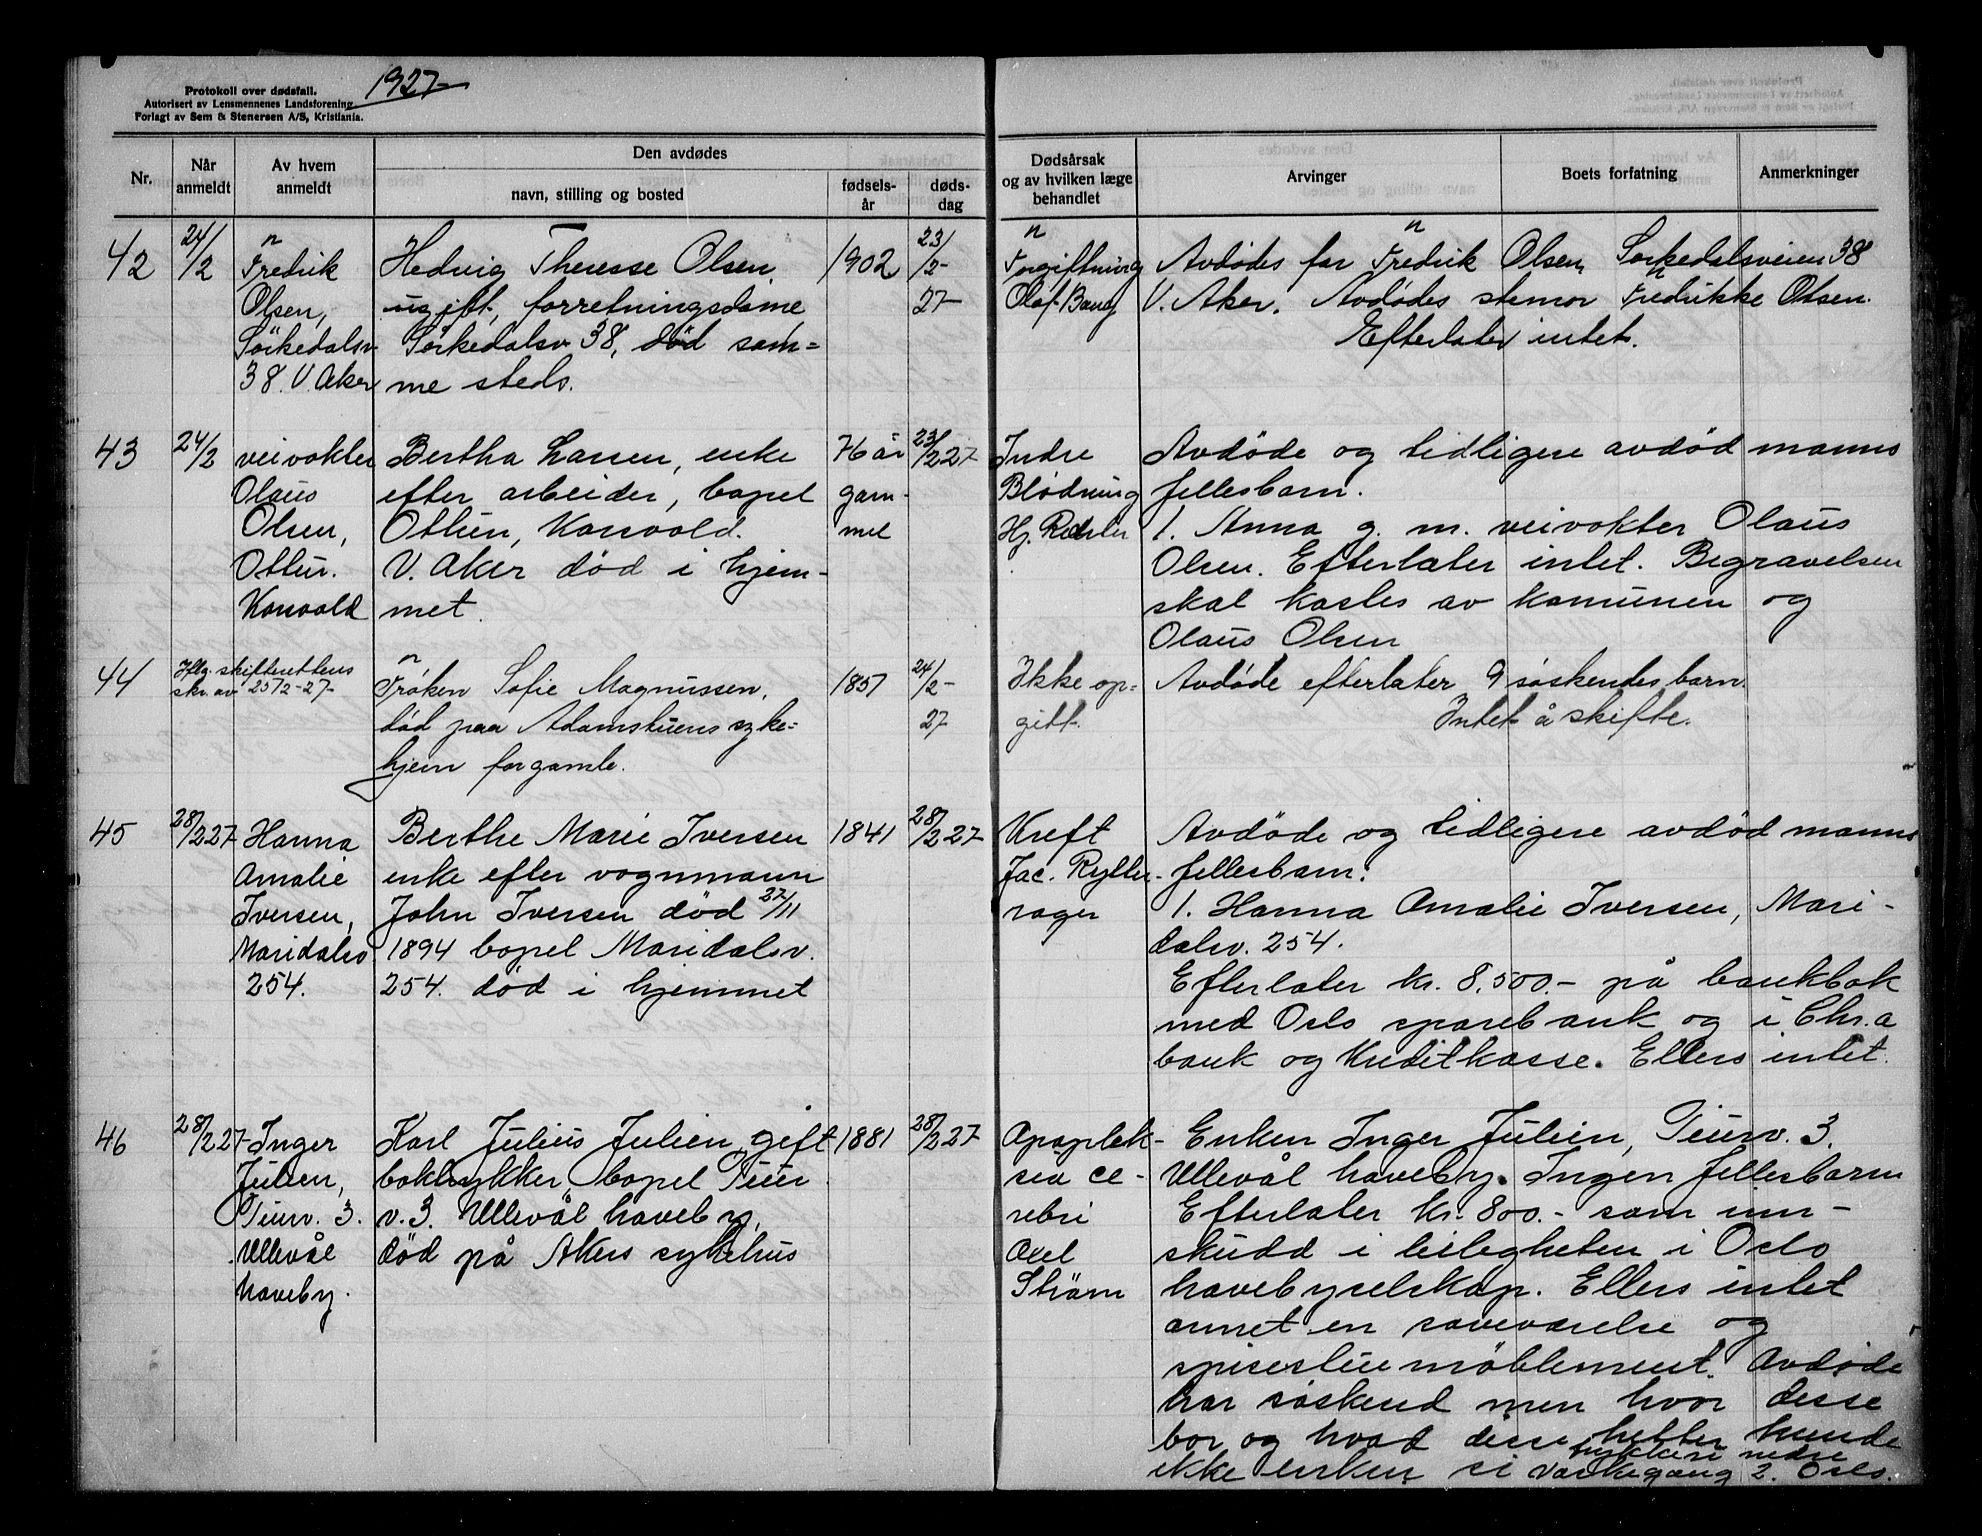 1927
Protokoll over dødsfall.
Autorisert av Lensmennenes Landsforening
Forlagt av Sem & Stenersen A/S, Kristiania.
Nr.
Når anmeldt
Av hvem anmeldt
Den avdødes
navn, stilling og bosted
fødsels-år
døds-dag
Dødsårsak og av hvilken læge behandlet
Arvinger
Boets forfatning
Anmerkninger
42
24/2
Fredrik
Olsen,
Sörkedalsv
38. V. Aker
Hedvig Therese Olsen
ugift, forretningsdame
Sörkedalsv 38, død sam=
me steds.
1902
23/2-
27-
Forgiftning
Olaf Bang
Avdødes far Fredrik Olsen, Sørkedalsveien 38
V. Aker. Avdødes stemor Fredrikke Olsen.
Efterlater intet.
43
24/2
veivokter
Olaus
Olsen,
Korsvold
Bertha Larsen, enke
efter arbeider, bopel
Korsvold.
V. Aker död i hjem-
met.
76 år
gam-
mel
23/2 27-
Indre
Blödning
Hj.
Avdöde og tidligere avdöd manns
fellesbarn.
1. Anna g. m. veivokter Olaus
Olsen. Efterlater intet. Begravelsen
skal kostes av komunen og
Olaus Olsen
44
Iflg. skifterettens
skr. av 25/2-27-
Frøken Sofie Magnussen,
død paa Adamstuens syke=
hjem for gamle.
1857
24/2-
27
Ikke op=
gitt.
Avdøde efterlater 9 søskendes barn.
Intet å skifte.
45
28/2 27-
Hanna
Amalie
Iversen,
Maridalsv
254.
Berthe Marie Iversen
enke efter vognmann
John Iversen död 22/11
1894 bopel Maridalsv.
254. död i hjemmet
1841
28/2 27-
Kreft
Jac. Rytter-
rager
Avdöde og tidligere avdöd manns
fellesbarn.
1. Hanna Amalie Iversen, Mari-
dalsv. 254.
Efterlater kr. 8.500.- på bankbok
med Oslo sparebank og i Chr.a
bank og Kreditkasse. Ellers intet.
46
28/2 27-
Inger
Julien,
v. 3.
Ullevål
haveby.
Karl Julius Julien, gift
boktrykker, bopel
v. 3. Ullevål haveby,
död på Akers sykehus
1881
28/2 27-
Apoplek-
sia ce-
rebri
Axel
Ström
Enken Inger Julien, v. 3.
Ullevål haveby. Ingen fellesbarn
Efterlater kr. 800.- som inn-
skudd i leiligheten i Oslo
havebyselskap. Ellers intet
annet en soveværelse og
spisestue möblement. Avdöde
har söskend men hvor desse
bor og hvad disse hetter kunde
ikke enken si
nedre
2. Oslo.